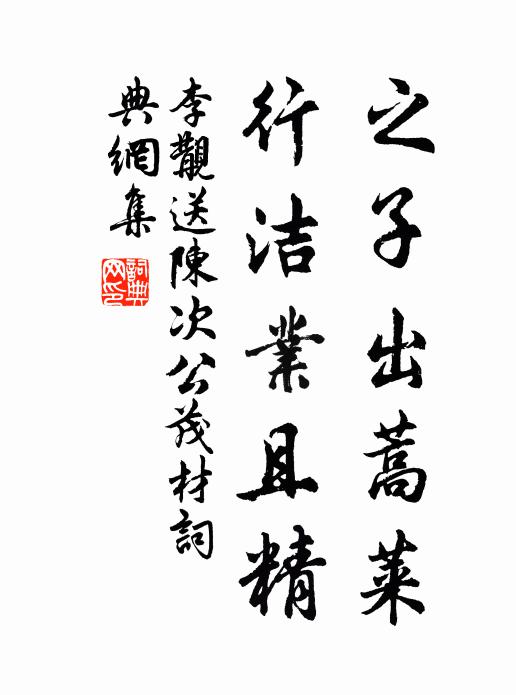 之子出蒿萊
行洁業且精
李覯送陳次公茂材詞
典網集
詞典网印